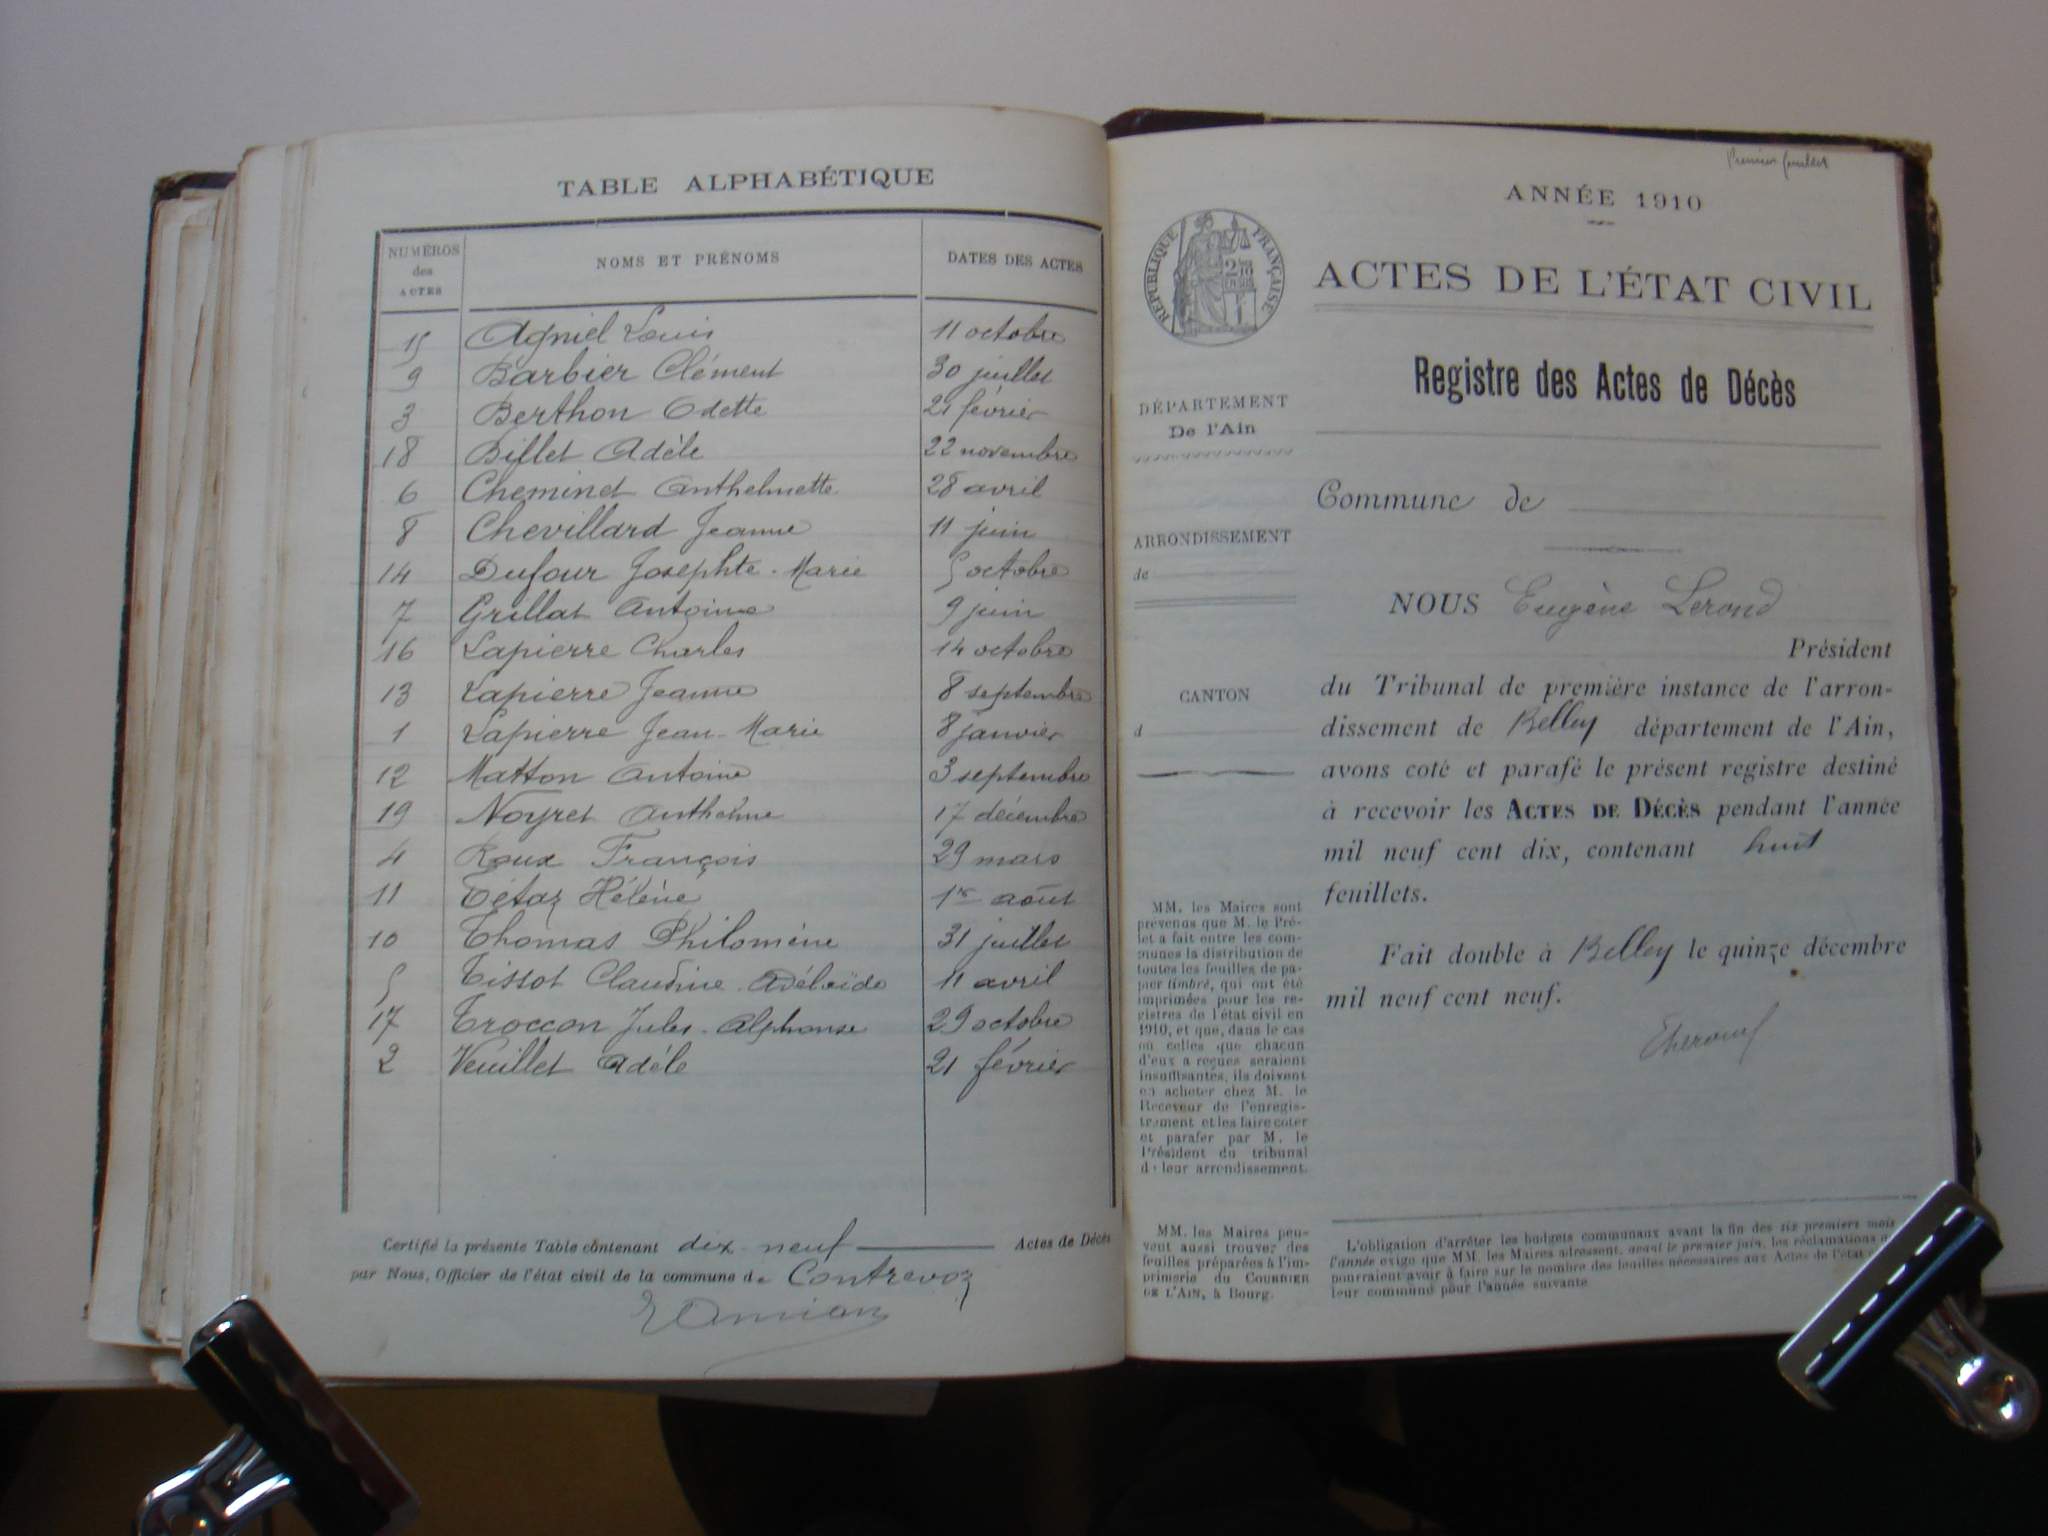 TABLE ALPHABÉTIQUE
NUMÉROS
des
ACTES
NOMS ET PRÉNOMS
DATES DES ACTES
15 Agniel Louis 11 octobre
9 Barbier Clément 30 juillet
3 Berthon Odette 21 février
18 Billet Adèle 22 novembre
6 Cheminet Anthelmette 28 avril
8 Chevillard Jeanne 11 juin
14 Dufour Josephte-Marie 5 octobre
7 Grillat Antoine 9 juin
16 Lapierre Charles 14 octobre
13 Lapierre Jeanne 8 septembre
1 Lapierre Jean-Marie 8 janvier
12 Matton Antoine 3 septembre
19 Noyret Anthelme 17 décembre
4 Roux François 29 mars
11 Tétaz Hélène 1er août
10 Thomas Philomène 31 juillet
5 Tissot Claudine-Adélaïde 11 avril
17 Troccon Jules-Alphonse 29 octobre
2 Veuillet Adèle 21 février
Certifié la présente Table contenant dix-neuf Actes de Décès
par Nous, Officier de l'état civil de la commune de Contrevoz
Premier feuillet
ANNÉE 1910
ACTES DE L'ÉTAT CIVIL
Registre des Actes de Décès
Commune de
NOUS Eugène Lerond
Président
du Tribunal de première instance de l'arron-
dissement de Belley département de l'Ain,
avons coté et parafé le présent registre destiné
à recevoir les ACTES DE DÉCÈS pendant l'année
mil neuf cent dix, contenant huit
feuillets.
Fait double à Belley le quinze décembre
mil neuf cent neuf.
RÉPUBLIQUE FRANÇAISE
DÉPARTEMENT
De l'Ain
ARRONDISSEMENT
de
CANTON
d
MM. les Maires sont
prévenus que M. le Pré-
fet a fait entre les com-
munes la distribution de
toutes les feuilles de pa-
pier timbré, qui ont été
imprimées pour les re-
gistres de l'état civil en
1910, et que, dans le cas
où celles que chacun
d'eux a reçues seraient
insuffisantes, ils doivent
en acheter chez M. le
Receveur de l'enregis-
trement et les faire coter
et parafer par M. le
Président du tribunal
de leur arrondissement.
MM. les Maires peu-
vent aussi trouver des
feuilles préparées à l'im-
primerie du COURRIER
DE L'AIN, à Bourg.
L'obligation d'arrêter les budgets communaux avant la fin des six premiers mois
l'année exige que MM. les Maires adressent, avant le premier juin, les réclamations
pourraient avoir à faire sur le nombre des feuilles nécessaires aux Actes de l'état
leur commune pour l'année suivante.